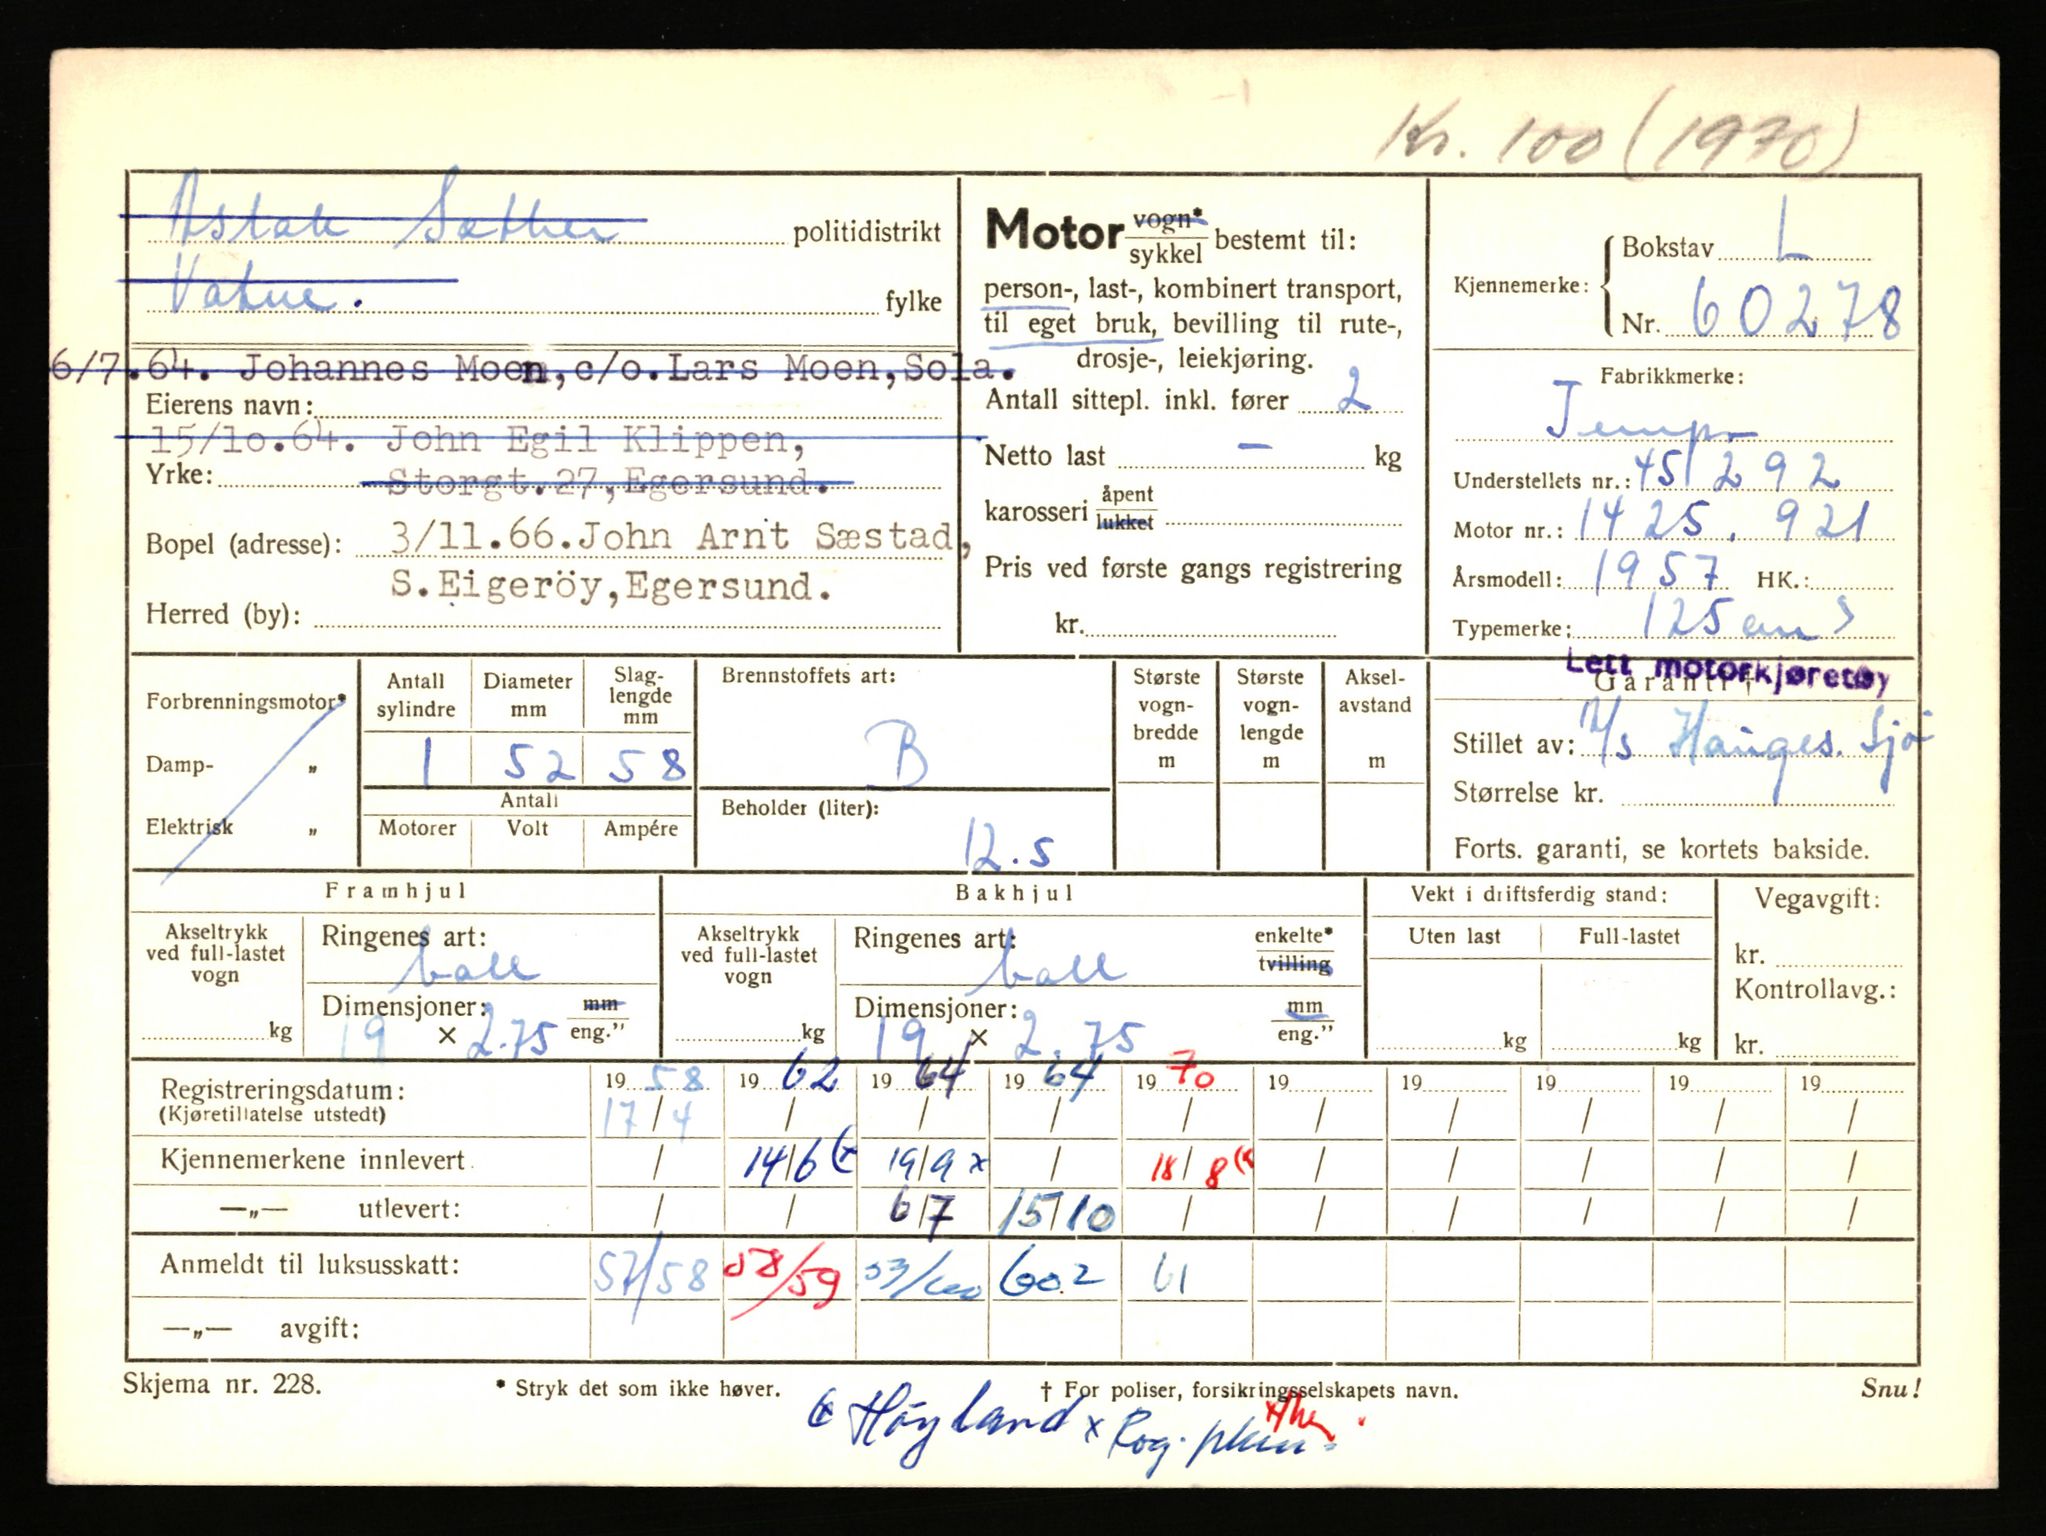 Kr. 100 (1970)
Astak Sæther politidistrikt
Vatne. fylke
6/7.64. Johannes Moen, c/o. Lars Moen, Sola.
Eierens navn:
15/10.64. John Egil Klippen,
Yrke: Storgt. 27, Egersund.
Bopel (adresse): 3/11.66. John Arnt Sæstad,
S. Eigeröy, Egersund.
Herred (by):
Motor vogn* / sykkel bestemt til:
person-, last-, kombinert transport,
til eget bruk, bevilling til rute-,
drosje-, leiekjøring.
Antall sittepl. inkl. fører 2
Netto last – kg
karosseri åpent / lukket
Pris ved første gangs registrering
kr.
Kjennemerke: Bokstav L
Nr. 60278
Fabrikkmerke:
Tempo
Understellets nr.: 451292
Motor nr.: 1425.921
Årsmodell: 1957 HK.:
Typemerke: 125 cm3
Lett motorkjøretøy
Garanti†
Stillet av: A/S Hauges. Sjø
Størrelse kr.
Forts. garanti, se kortets bakside.
Forbrenningsmotor*
Damp- „
Elektrisk „
Antall sylindre Diameter mm Slag-lengde mm
1 52 58
Antall
Motorer Volt Ampére
Brennstoffets art:
B
Beholder (liter):
12.5
Største vogn-bredde m Største vogn-lengde m Aksel-avstand m
Framhjul
Akseltrykk ved full-lastet vogn kg
Ringenes art: ball
Dimensjoner: 19 × 2.75 mm / eng.”
Bakhjul
Akseltrykk ved full-lastet vogn kg
Ringenes art: ball enkelte* / tvilling
Dimensjoner: 19 × 2.75 mm / eng.”
Vekt i driftsferdig stand:
Uten last Full-lastet
kg kg
Vegavgift:
kr.
Kontrollavg.:
kr.
Registreringsdatum: 19 58 19 62 19 64 19 64 19 70 19 19 19 19 19
(Kjøretillatelse utstedt) 17/4 / / / / / / / / /
Kjennemerkene innlevert / 14/6 (x 19/9 x / 18/8 (x / / / / /
—„— utlevert: / / 6/7 15/10 / / / / / /
Anmeldt til luksusskatt: 57/58 58/59 60.2 61
—„— avgift:
Skjema nr. 228. * Stryk det som ikke høver. † For poliser, forsikringsselskapets navn. Snu!
Höyland x Rog.